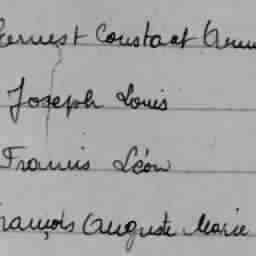 Ernest Constant
Joseph Louis
Francis Léon
François Auguste Marie